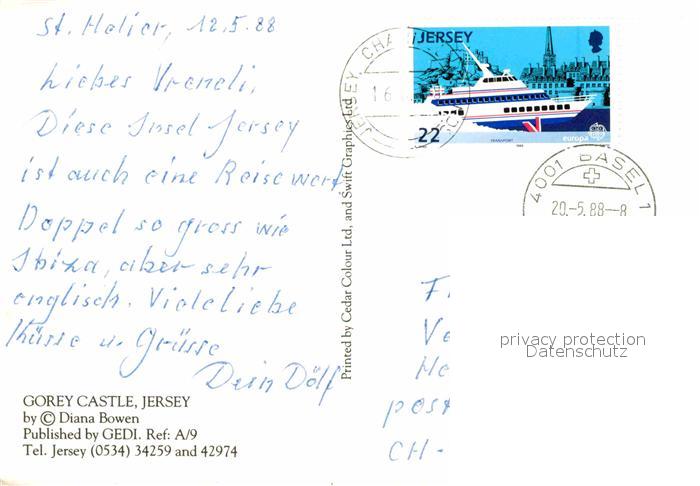 St. Helier, 12.5.88
Liebes Vreneli,
Diese Insel Jersey
ist auch eine Reise wert
Doppel so gross wie
Ibiza, aber sehr
englisch. Viele liebe
Küsse u. Grüsse
Dein Dölf
GOREY CASTLE, JERSEY
by © Diana Bowen
Published by GEDI. Ref: A/9
Tel. Jersey (0534) 34259 and 42974
Printed by Cedar Colour Ltd., and Swift Graphics Ltd
JERSEY
22
TRANSPORT
europa
JERSEY CHA
16
4001 BASEL 1
20.-5.88--8
F
Ve
He
post
CH-
privacy protection
Datenschutz